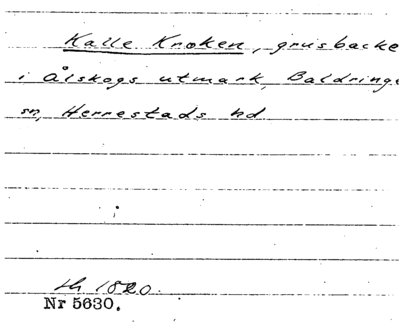 Kalle Kroken, grusbacke
i Ålskogs utmark, Baldringe
sn, Herrestads hd
1820.
Nr 5630.